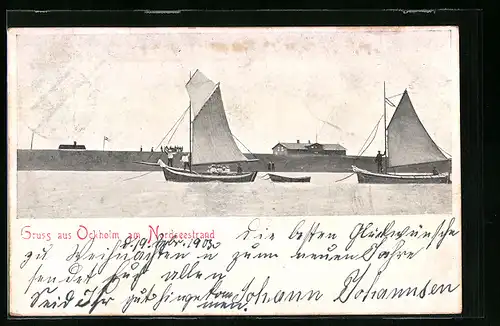 Gruss aus Ockholm am Nordseestrand
d. 19. Dez. 1903
die besten Glückwünsche
zu Weihnachten u zum neuen Jahre
sendet Euch allen Johann Johannsen
Seid Ihr gut hingekommen.